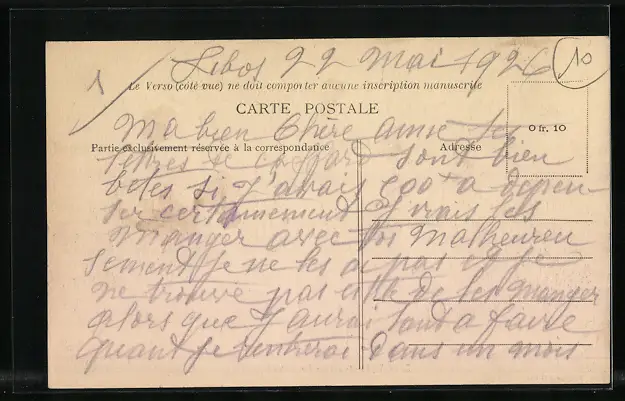 1
Libos 22 Mai 1926
10
Le Verso (côté vue) ne doit comporter aucune inscription manuscrite
CARTE POSTALE
0 fr. 10
Ma bien Chère amie tes
Partie exclusivement réservée à la correspondance
Adresse
lettres de sont bien
betes si J'avais 500 a depen
ser certainement J irais les
Manger avec toi Malheureu
sement Je ne les ai pas et Je
ne trouve pas utile de les manger
alors que J aurai tout a faire
quant Je rentrerai Dans un mois